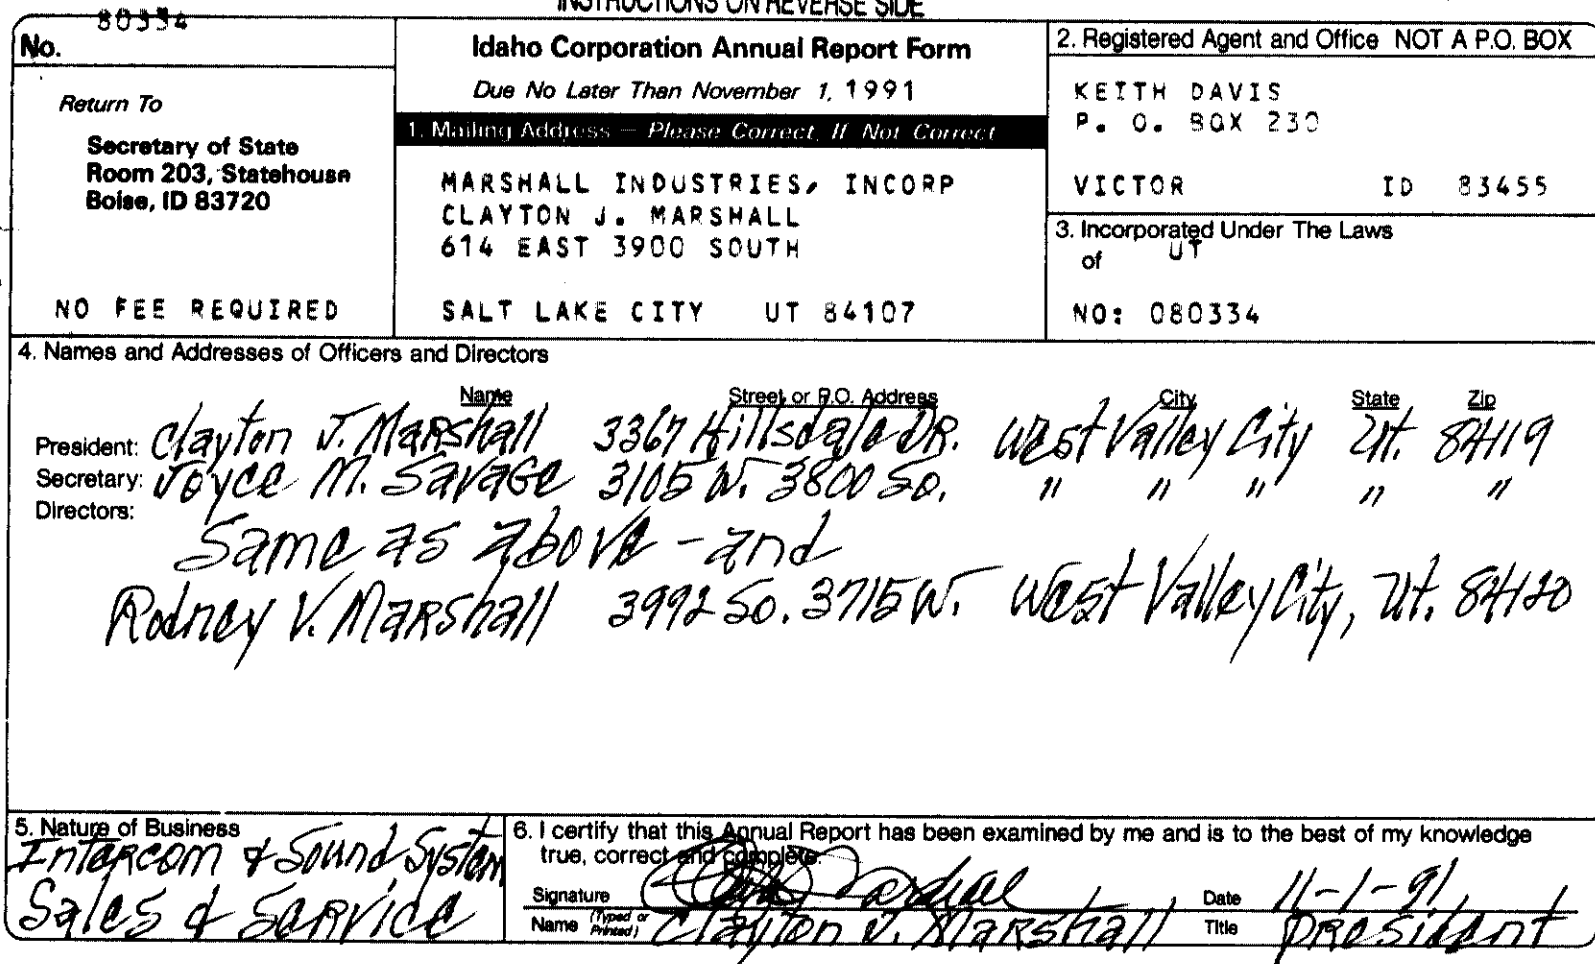 INSTRUCTIONS ON REVERSE SIDE
No. 80334
Return To
Secretary of State
Room 203, Statehouse
Boise, ID 83720
NO FEE REQUIRED
Idaho Corporation Annual Report Form
Due No Later Than November 1, 1991
1. Mailing Address — Please Correct, If Not Correct
MARSHALL INDUSTRIES, INCORP
CLAYTON J. MARSHALL
614 EAST 3900 SOUTH
SALT LAKE CITY UT 84107
2. Registered Agent and Office NOT A P.O. BOX
KEITH DAVIS
P. O. BOX 230
VICTOR ID 83455
3. Incorporated Under The Laws
of UT
NO: 080334
4. Names and Addresses of Officers and Directors
Name Street or P.O. Address City State Zip
President: Clayton J. Marshall 3367 Hillsdale DR. West Valley City Ut. 84119
Secretary: Joyce M. Savage 3105 W. 3800 So. " " " " "
Directors:
Same as above - and
Rodney V. Marshall 3992 So. 3715 W. West Valley City, Ut. 84120
5. Nature of Business
Intercom & Sound System
Sales & Service
6. I certify that this Annual Report has been examined by me and is to the best of my knowledge
true, correct and complete.
Signature Date 11-1-91
Name (Typed or Printed) Clayton J. Marshall Title President